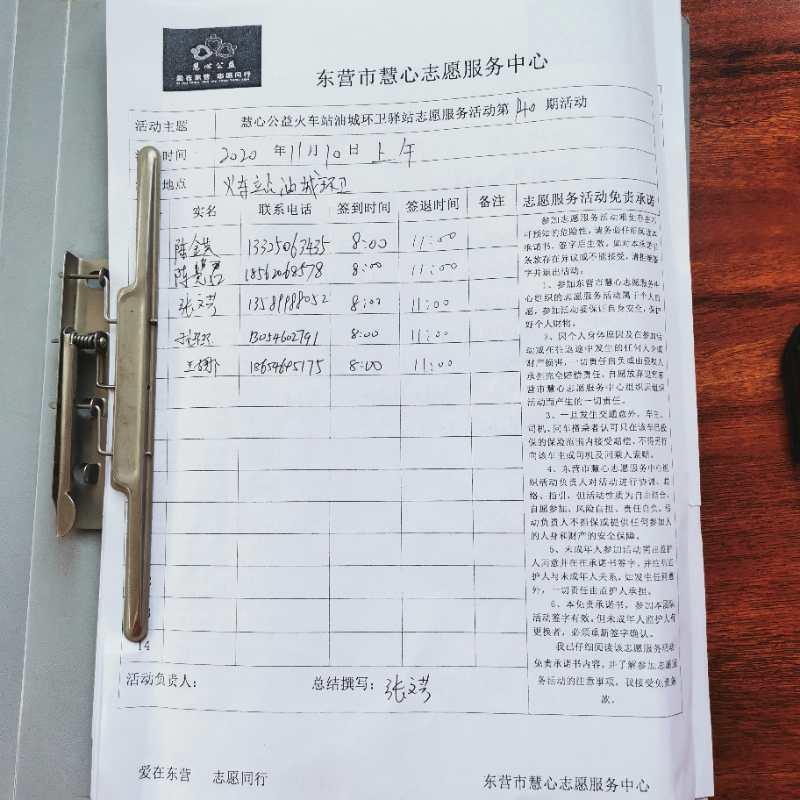 慧心公益
爱在东营 志愿同行
东营市慧心志愿服务中心
活动主题 慧心公益火车站油城环卫驿站志愿服务活动第140期活动
时间 2020年11月10日上午
地点 火车站油城环卫
实名 联系电话 签到时间 签退时间 备注 志愿服务活动免责承诺
13325063435 8:00 11:00
18562068578 8:00 11:00
张文芳 13589988052 8:00 11:00
13054602791 8:00 11:00
18654695175 8:00 11:00
参加志愿服务活动难免存在不
可预知的危险性，请务必仔细阅读本
承诺书，签字后生效，如对本承诺书
条款存在异议或不能接受，请拒绝签
字并退出活动：
1、参加东营市慧心志愿服务中
心组织的志愿服务活动属于个人自
愿，参加活动要保证自身安全，保护
好个人财物。
2、因个人身体原因及在参加活
动或在往返途中发生的任何人身或
财产损害，一切责任自负或由侵权人
承担完全赔偿责任，自愿放弃追究东
营市慧心志愿服务中心组织类组织
活动而产生的一切责任。
3、一旦发生交通意外，车主、
司机、同车搭乘者认可只在该车已投
保的保险范围内接受赔偿，不得另行
向该车主或司机及同乘人索赔。
4、东营市慧心志愿服务中心组
织活动负责人对活动进行协调、联
络、指引，但活动性质为自由结合、
自愿参加、风险自担、责任自负，活
动负责人不担保或提供任何参加人
的人身和财产的安全保障。
5、未成年人参加活动需由监护
人同意并在承诺书签字，并注明监
护人与未成年人关系，如发生任何意
外，一切责任由监护人承担。
6、本免责承诺书，参加本团队
活动签字有效，但未成年人监护人有
更换者，必须重新签字确认。
我已仔细阅读该志愿服务活动
免责承诺书内容，并了解参加志愿服
务活动的注意事项，我接受免责条
款。
14
活动负责人： 总结撰写：张文芳
爱在东营 志愿同行 东营市慧心志愿服务中心